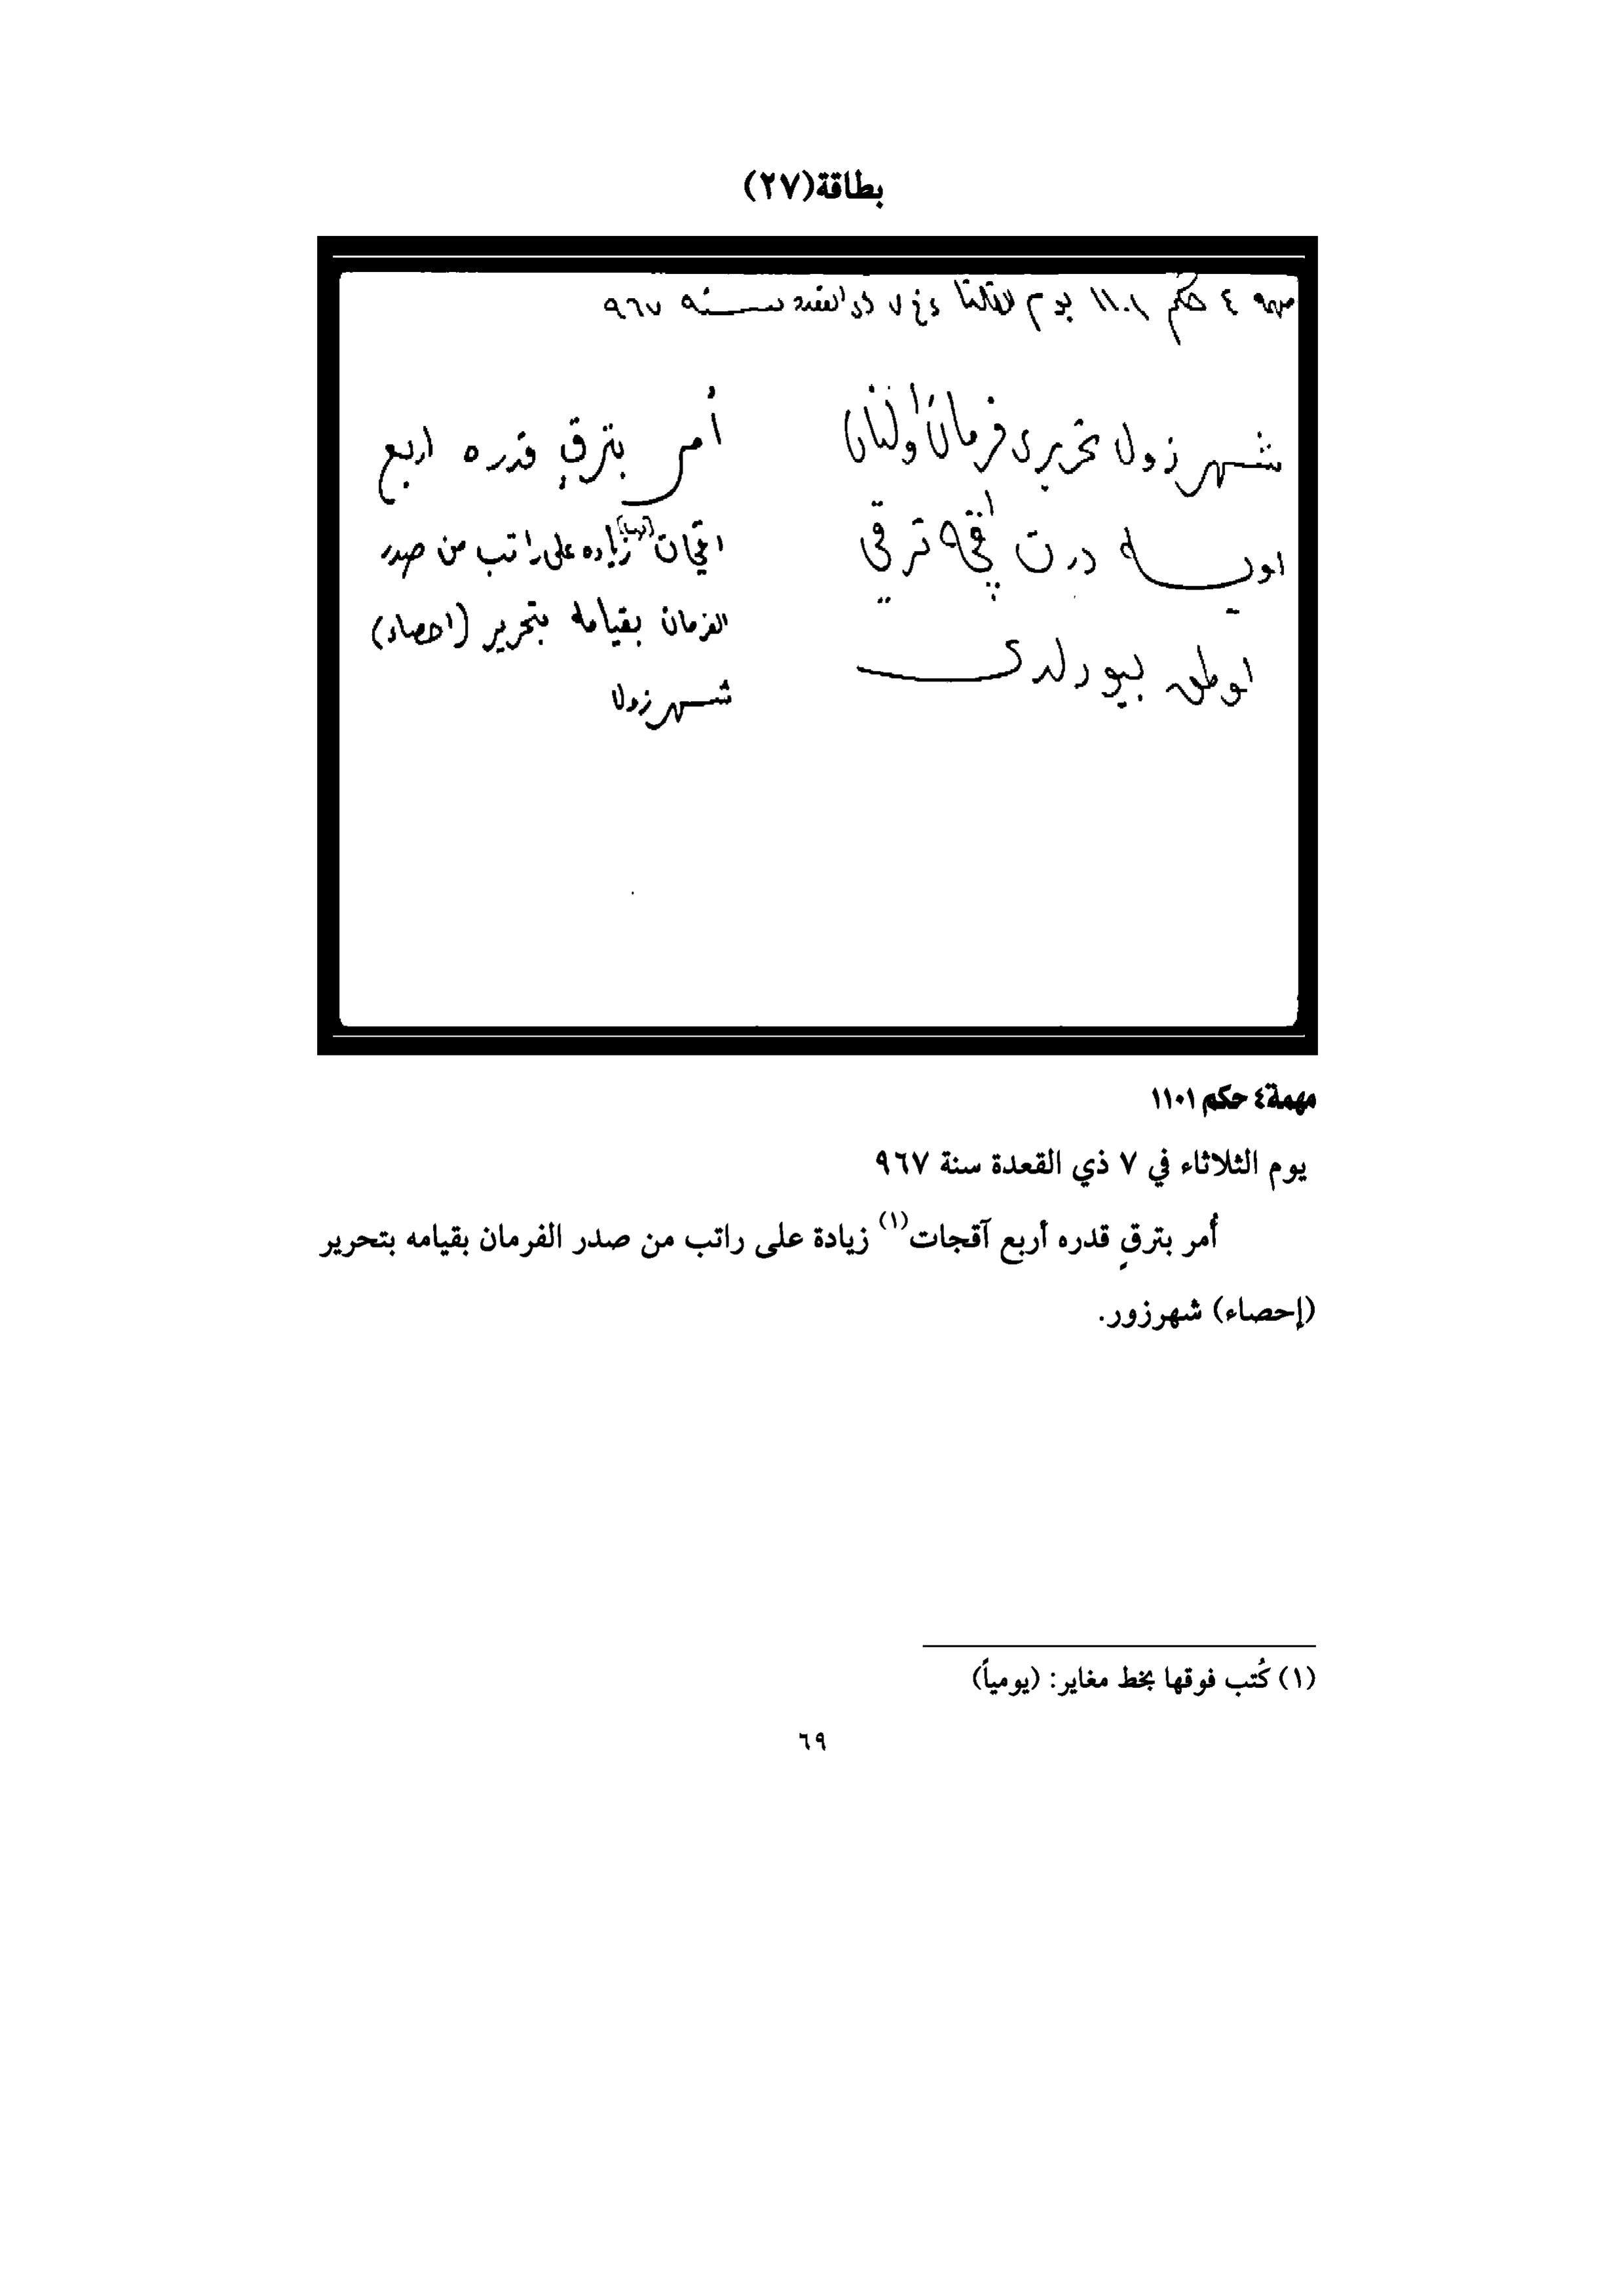 بطاقة(٢٧)
مهمه ٤ حكم ١١٠١ يوم الثالثا في ٧ ذي القعده سنه ٩٦٧
شهرزول تحريرى فرمان اولنان
درت اقچه ترقي
بيورلدى
أمر بترقٍ قدره اربع
اقجات (يوميا) زياده على راتب من صدر
الفرمان بقيامه بتحرير (احصاء)
شهرزول
مهمة٤ حكم ١١٠١
يوم الثلاثاء في ٧ ذي القعدة سنة ٩٦٧
أُمر بترقٍ قدره أربع آقجات(١) زيادة على راتب من صدر الفرمان بقيامه بتحرير
(إحصاء) شهرزور.
(١) كُتب فوقها بخط مغاير: (يومياً)
٦٩